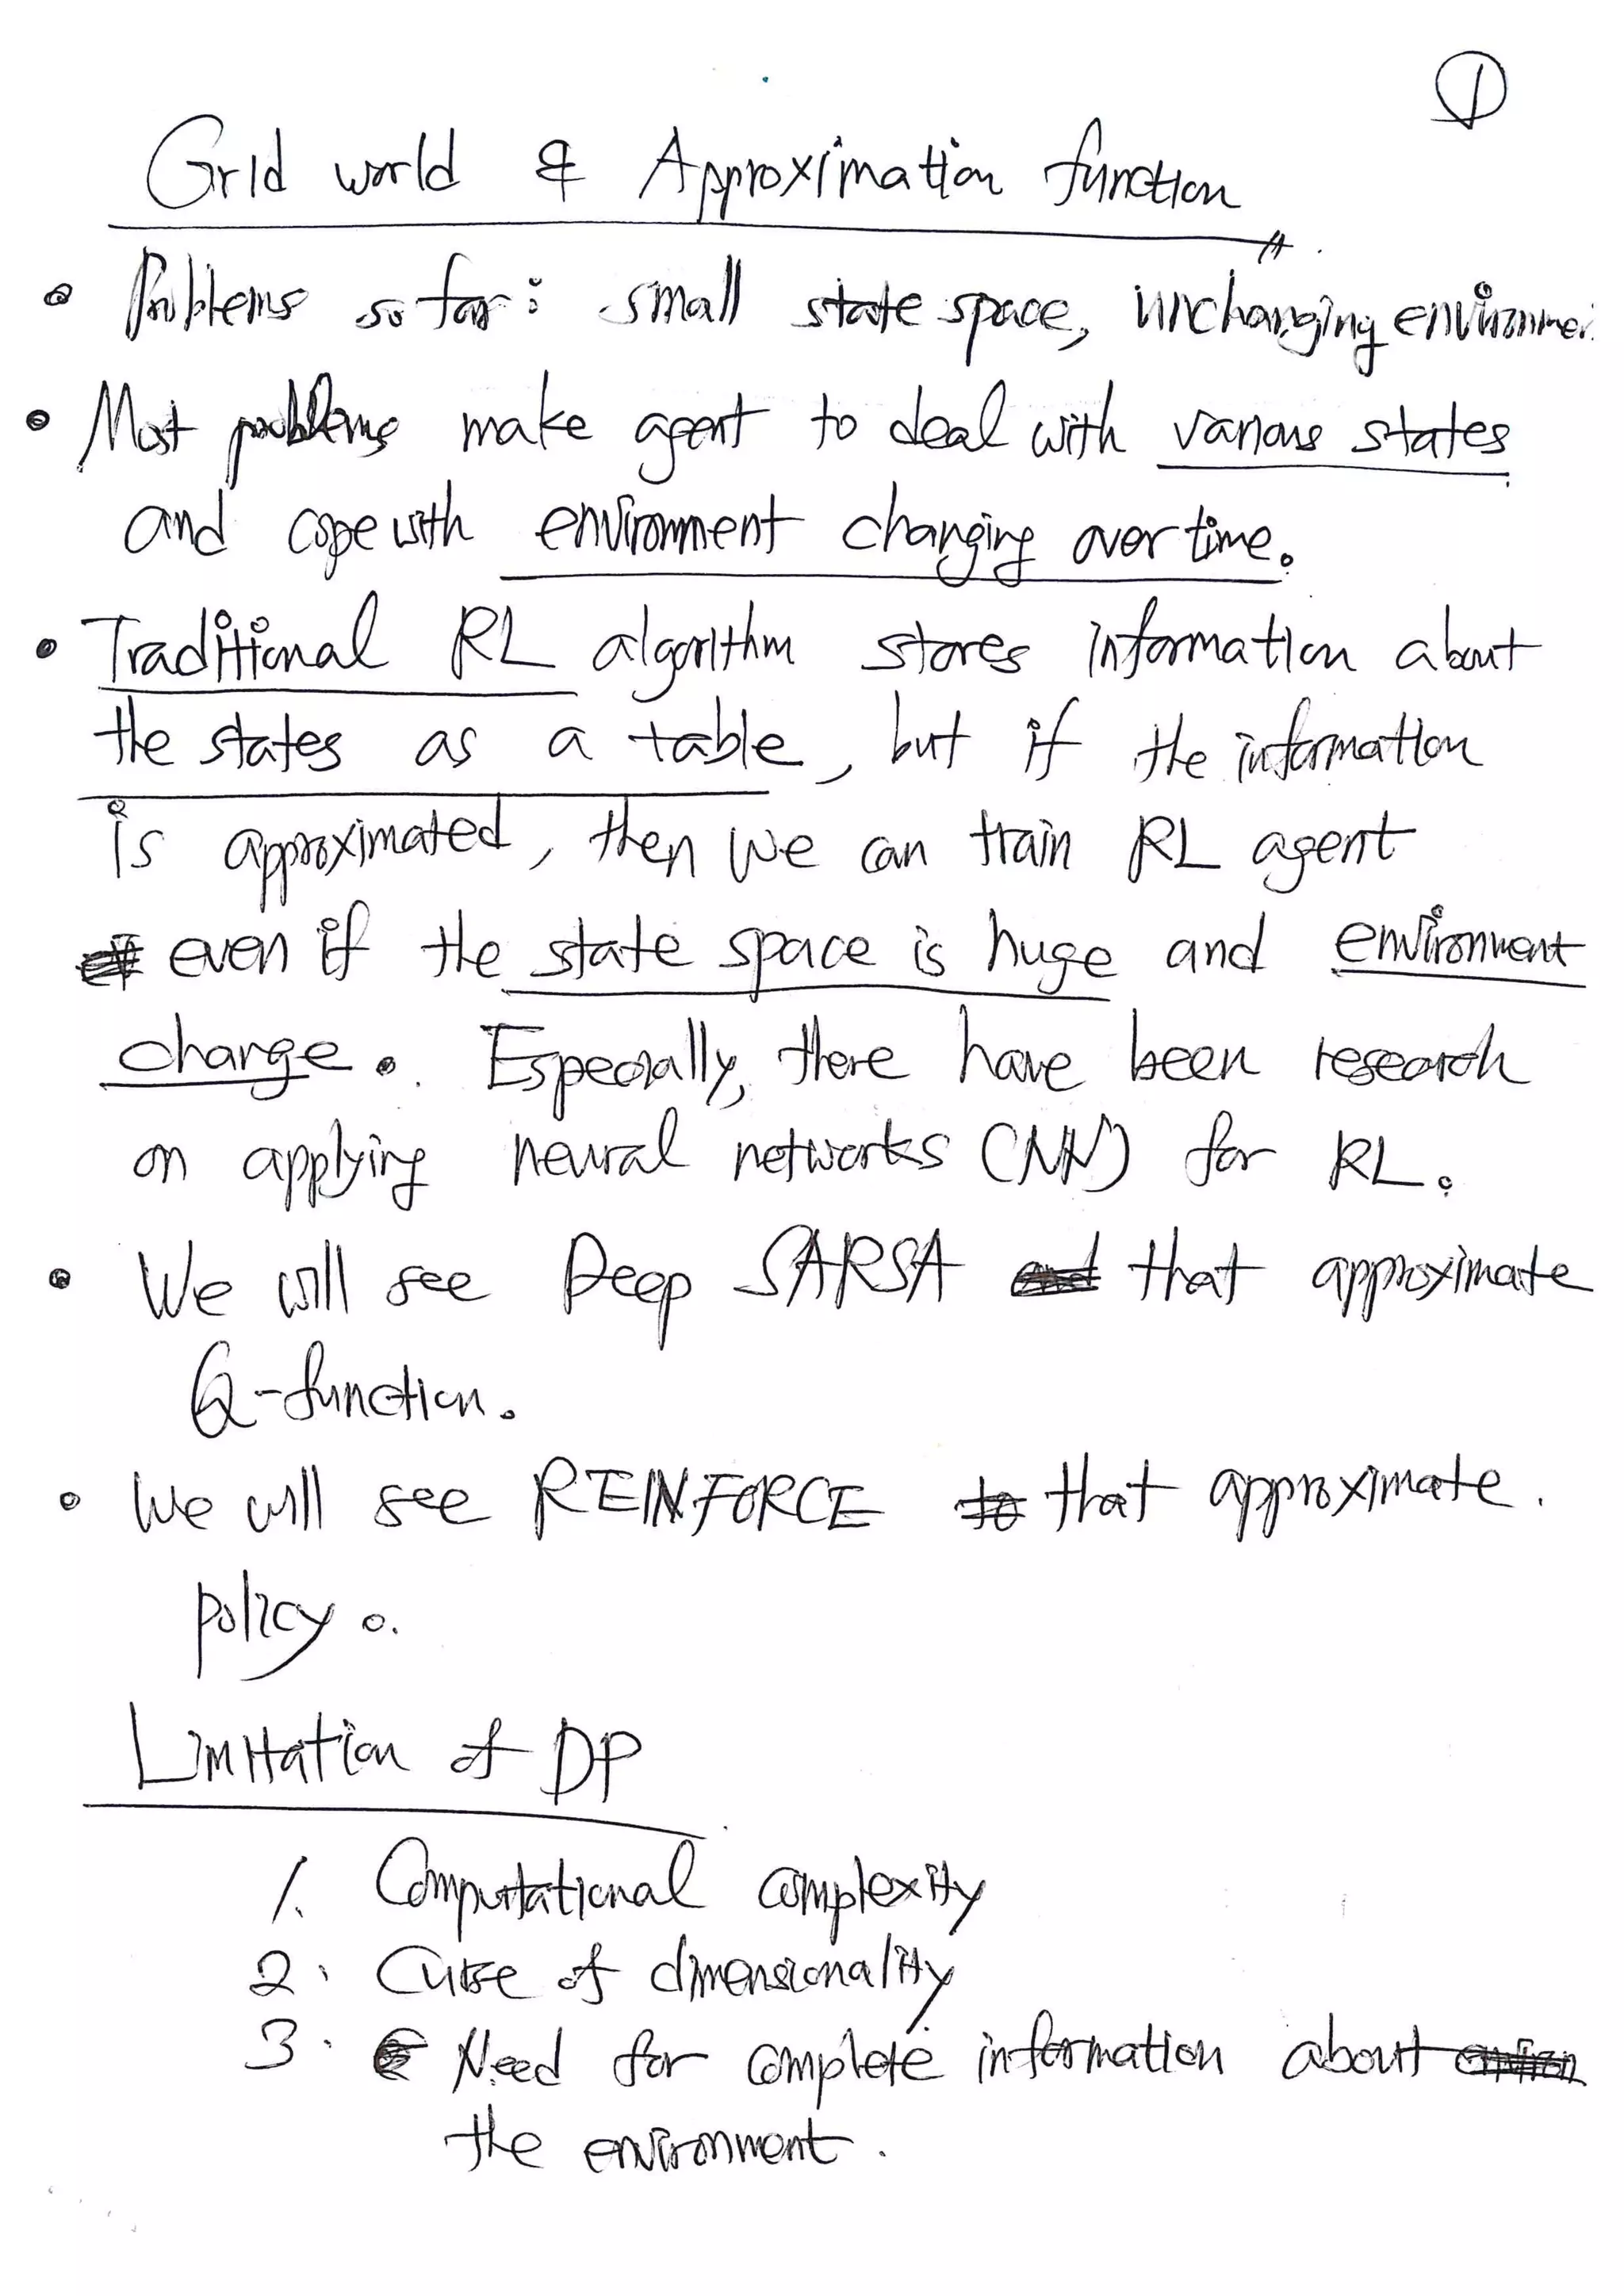 ①
Grid world & Approximation function
• Problems so far: small state space, unchanging environmen
• Most problems make agent to deal with various states
and cope with environment changing over time.
• Traditional RL algorithm stores information about
the states as a table, but if the information
is approximated, then we can train RL agent
even if the state space is huge and environment
change. Especially, there have been research
on applying neural networks (NN) for RL.
• We will see Deep SARSA and that approximate
Q-function.
• We will see REINFORCE to that approximate.
policy.
Limitation of DP
1. Computational complexity
2. Curse of dimensionality
3. Need for complete information about environ
the environment.